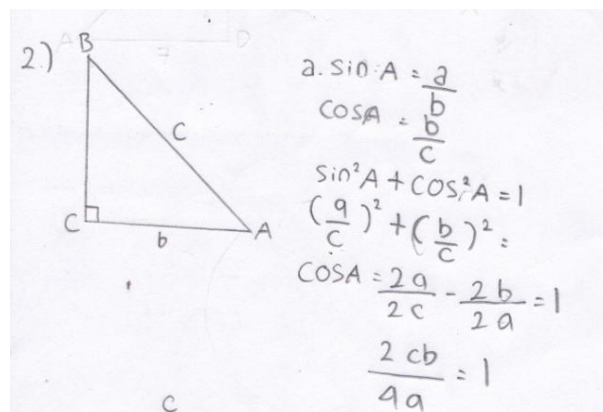 2.)
B
C
C
b
A
a. sin A = a/b
cos A = b/c
sin²A + cos²A = 1
(a/c)² + (b/c)² =
COSA = 2a/2c - 2b/2a = 1
2cb/4a = 1
C